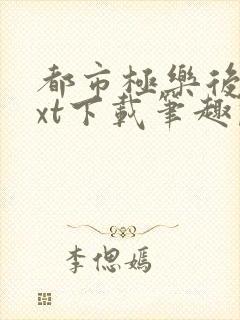 都市極樂後
xt下載筆趣
李偲嫣